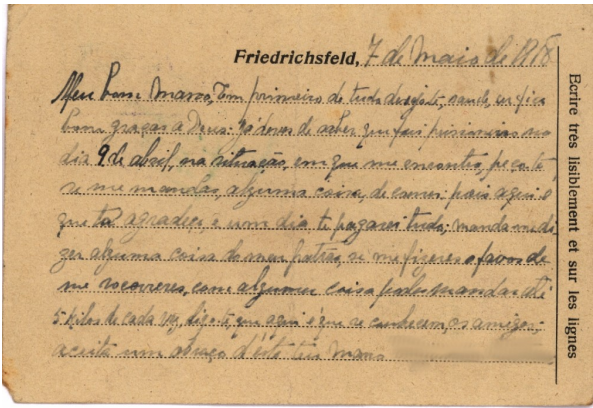 Friedrichsfeld, 7 de Maio de 1918
Meu bom mano, Em primeiro de tudo desejote, saude, eu fico
bom graças a Deus: Já deves de saber que fui prisioneiro no
dia 9 de abril, na situação, em que me encontro, peçote
se me mandas, alguma coisa, de comer; pois aqui é
que ta agradeço, e um dia te pagarei tudo; manda me di
zer alguma coisa do meu patrão, se me fizeres o favor de
me socorreres, com alguma coisa podes mandar até
5 kilos de cada vez, digote, que aqui é que se conhecem, os amigos;
aceita um abraço d'este teu mano
Ecrire très lisiblement et sur les lignes